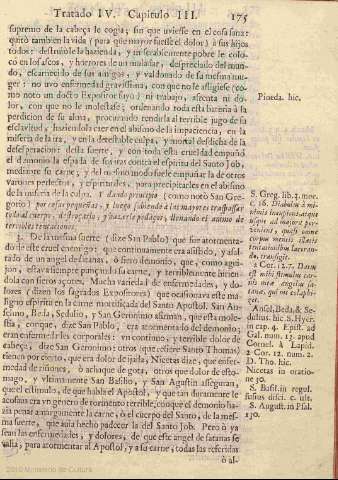 Tratado IV. Capitulo III. 175
supremo de la cabeça le cogia; sin que uviesse en el cosa sana:
quitò tambien la vida (para que mayor fuesse el dolor) à sus hijos
todos: destruiole la hazienda, y miserablemente pobre le colo-
cò en los ascos, y horrores de un muladar, despreciado del mun-
do, escarnecido de sus amigos, y valdonado de su mesma mu-
ger: no uvo enfermedad gravissima, con que no le afligiesse (co-
mo notò un docto Expositor suyo) ni trabajo, afrenta ni do-
lor, con que no le molestasse; ordenando toda esta bateria à la
perdicion de su alma, procurando rendirla al terrible jugo de su
esclavitud, haziendola caer en el abismo de la impaciencia, en la
miseria de la ira, y en la detestable culpa, y mortal desdicha de la
desesperacion: desta suerte, y con toda esta crueldad empuñò
el demonio la espada de sus iras contra el espiritu del Santo Job,
mediante su carne; y del mismo modo suele empuñar la de otros
varones perfectos, y espirituales, para precipitarles en el abismo
de la miseria de la culpa. Y dando principio (como notò San Gre-
gorio) por cosas pequeñas, y luego subiendo à mayores traspassar
todo el cuerpo, destroçarlo, y hazerle pedaços, domando el animo de
terribles tentaciones.
3. De la misma suerte (dize San Pablo) que fue atormenta-
do desde este cruel enemigo: que continuamente era asistido, y asal-
tado de un angel de satanas, ò fiero demonio, que, como agui-
jon, estava siempre punçando su carne, y terriblemente hirien-
dola con fieros açotes. Mucha variedad de enfermedades, y do-
lores (dizen los sagrados Expositores) que ocasionava este ma-
ligno espiritu en la carne mortificada del Santo Apostol. San An-
selmo, Beda, Sedulio, y San Geronimo afirman, que esta moles-
tia, conque, dize San Pablo, era atormentado del demonio;
eran enfermedades corporales: un continuo, y terrible dolor de
cabeça, dize San Geronimo; otros (que refiere Santo Thomas)
tienen por cierto, que era dolor de ijada, Nicetas dize, que enfer-
medad de riñones, ò achaque de gota, otros que dolor de esto-
mago, y ultimamente San Basilio, y San Agustin asseguran,
que el estimulo, de que habla el Apostol, y que tan duramente le
acosava era un genero de tormento terrible, conque el demonio ha-
zia penar amargamente la carne, ò el cuerpo del Santo, de la mes-
ma suerte, que avia hecho padecer la del Santo Job. Pero ò ya
sean las enfermedades, y dolores, de que este angel de satanas se
valia, para atormentar al Apostol, y a su carne, todas las referidas
ò al-
Pineda. hic.
S. Greg. lib. 3. mor.
c. 16. Diabolus à mi-
nimis inchoans, atque
usque ad majora per-
veniens, quasi omne
corpus mentis illatis
tentationibus lacerando,
transigit.
2 Cor. 12. 7. Datus
est mihi stimulus car-
nis meæ angelus sa-
tanæ, qui me colaphi-
zet.
Ansel. Beda, & Se-
dulius. hic. S. Hyer.
in cap. 4. Epist. ad
Gal. num. 13. apud
Cornel. à Lapid.
2 Cor. 12. num. 2.
D. Tho. hic.
Nicetas in oratio-
ne 30.
S. Basil. in regul.
fusius disci. c. ult.
S. August. in Psal.
130.
2010 Ministerio de Cultura